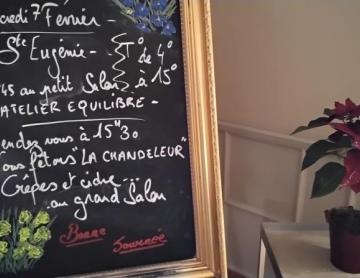 credi 7 Février -
Ste Eugénie - T° de 4°
à 15°
45 au petit Salon
ATELIER EQUILIBRE -
endez vous à 15H30
ous fêtons "LA CHANDELEUR"
Crêpes et cidre ...
au grand Salon
Bonne Journée